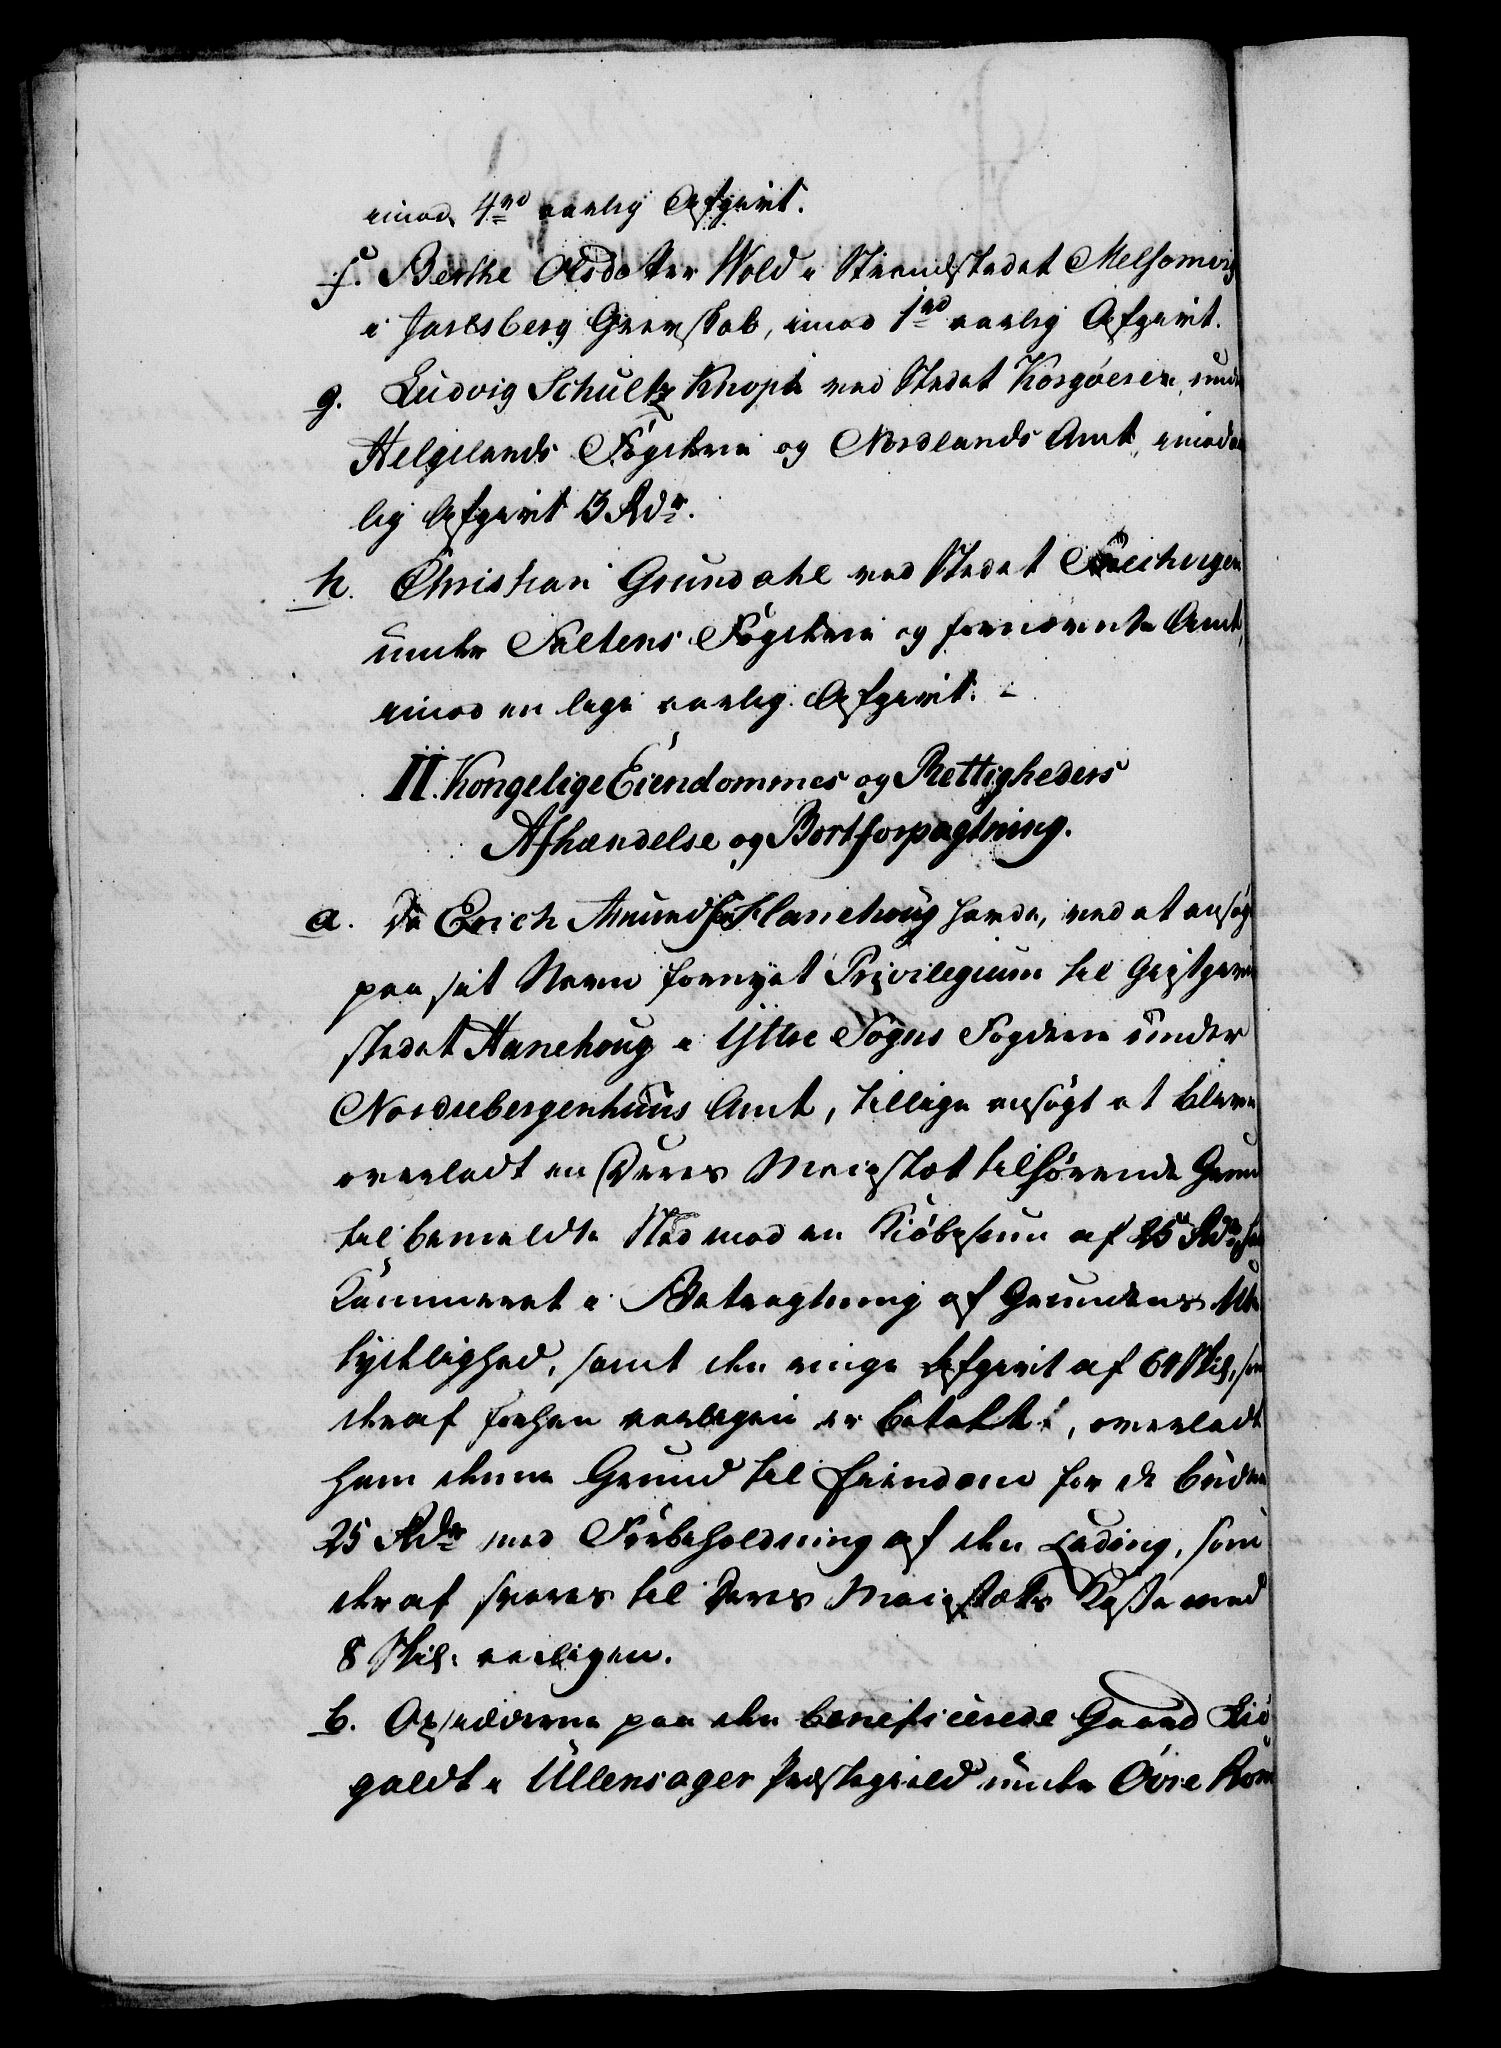 imod 4 rd aarlig Afgivt.
f. Berthe Olsdatter Wold i Strandstedet Melsomvig
i Jarlsberg Grevskab, imod 1 rd aarlig Afgivt.
g. Ludvig Schultz Knoph ved Stedet Korsøeren, under
Helgelands Fogderie og Nordlands Amt, imod aar
lig Afgivt 3 Rdr.
h. Christian Grundahl ved Stedet
under Saltens Fogderie og fornævnte Amt,
imod en lige aarlig Afgivt.
II. Kongelige Eiendommes og Rettigheders
Afhændelse og Bortforpagtning.
a. Da Erich Amundsen Hanehoug havde, ved at ansøge
paa sit Navn fornyet Privilegium til Giestgiver
stedet Hanehoug i Yttre Sogns Fogderie under
Nordrebergenhuus Amt, tillige ansøgt at blive
overladt en Deres Majestæt tilhørende Grund
til bemeldte Sted mod en Kiøbesum af 25 Rdr, har
Kammeret i Betragtning af Grundens Ube
tydelighed, samt den ringe Afgivt af 64 Skil., som
deraf forhen aarligen er betalt, overladt
ham denne Grund til Eiendom for de budne
25 Rdr med Forbeholdning af den Leding, som
deraf svares til Deres Majestæts Kasse med
8 Skil. aarligen.
b. Opsidderne paa den beneficerede Gaard Li
galdt i Ullensager Præstegield under Øvre Rom